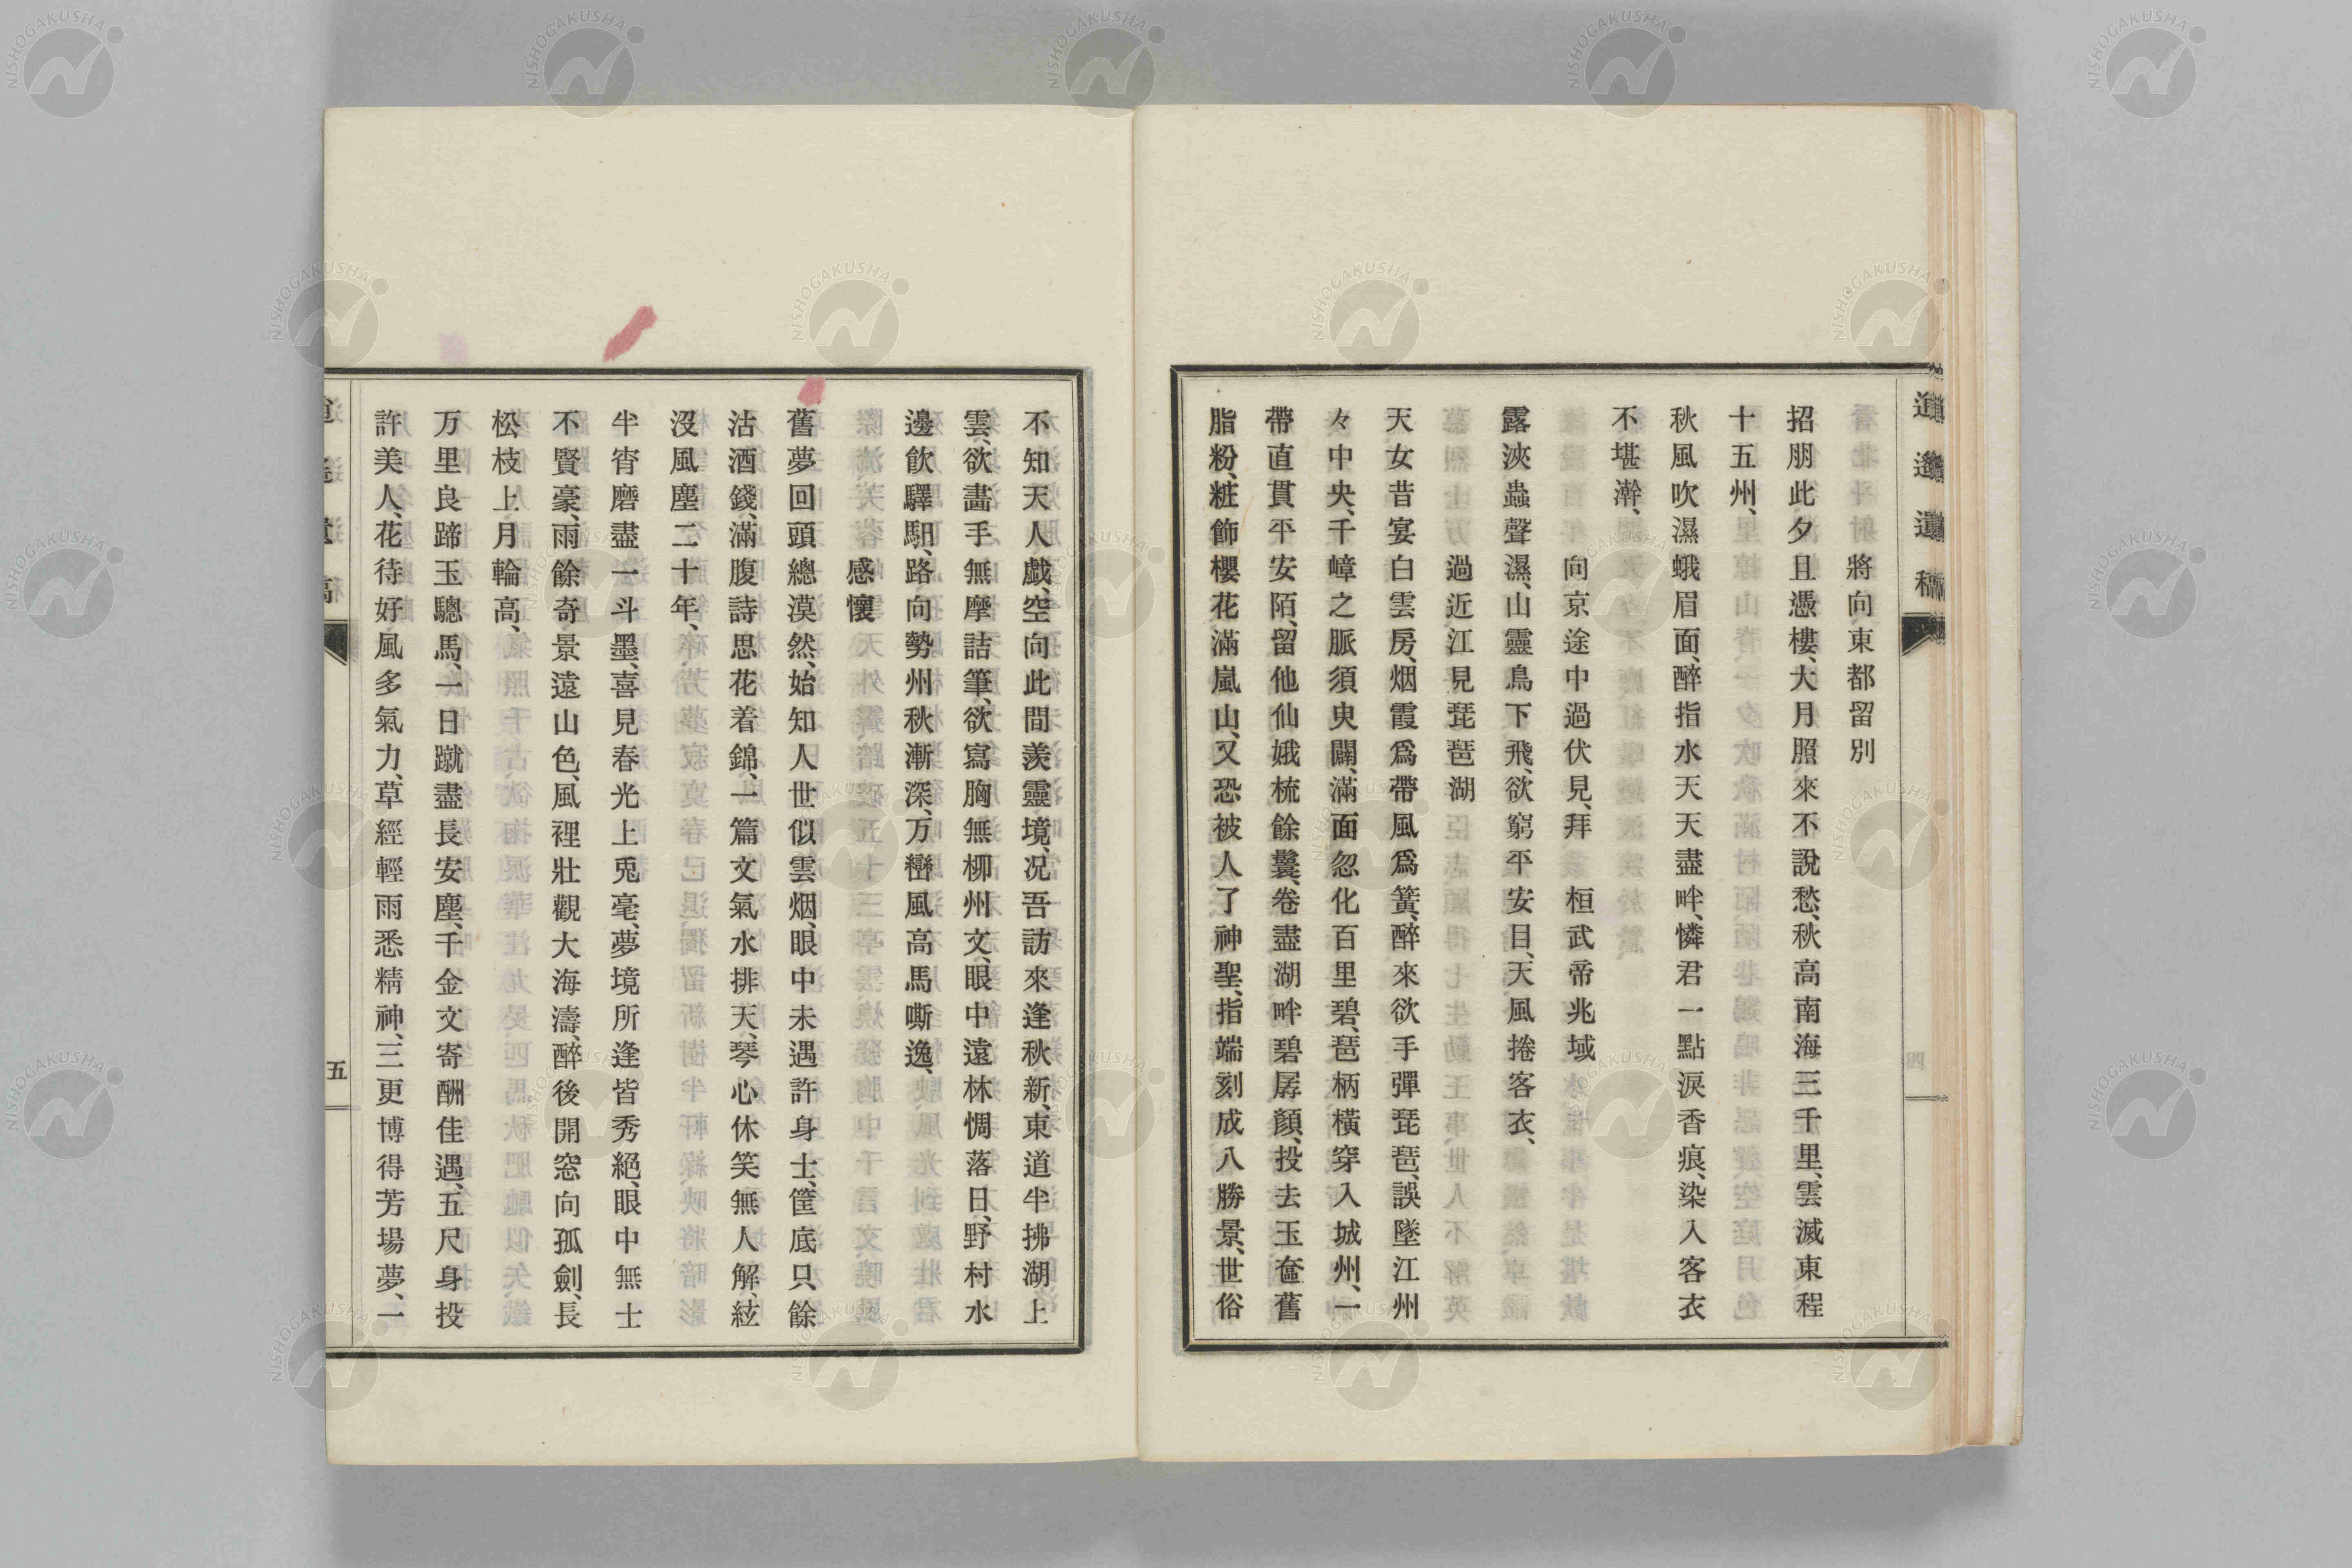 將向東都留別
招朋此夕且憑樓、大月照來不說愁、秋高南海三千里、雲滅東程
十五州、
秋風吹濕蛾眉面、醉指水天天盡畔、憐君一點淚香痕、染入客衣
不堪澣、
向京途中過伏見、拜 桓武帝兆域
露浹蟲聲濕、山靈鳥下飛、欲窮平安目、天風捲客衣、
過近江見琵琶湖
天女昔宴白雲房、烟霞爲帶風爲簧、醉來欲手彈琵琶、誤墜江州
々中央、千嶂之脈須臾闢、滿面忽化百里碧、琶柄橫穿入城州、一
帶直貫平安陌、留他仙娥梳餘鬟、卷盡湖畔碧孱顏、投去玉奩舊
脂粉、粧飾櫻花滿嵐山、又恐被人了神聖、指端刻成八勝景、世俗
不知天人戯、空向此間羨靈境、况吾訪來逢秋新、東道半拂湖上
雲、欲畵手無摩詰筆、欲寫胸無柳州文、眼中遠林惆落日、野村水
邊飮驛馹、路向勢州秋漸深、万巒風高馬嘶逸、
感懷
舊夢回頭總漠然、始知人世似雲烟、眼中未遇許身士、筐底只餘
沽酒錢、滿腹詩思花着錦、一篇文氣水排天、琴心休笑無人解、絃
沒風塵二十年、
半宵磨盡一斗墨、喜見春光上兎毫、夢境所逢皆秀絕、眼中無士
不賢豪、雨餘奇景遠山色、風裡壯觀大海濤、醉後開窓向孤劍、長
松枝上月輪高、
万里良蹄玉驄馬、一日蹴盡長安塵、千金文寄酬佳遇、五尺身投
許美人、花待好風多氣力、草經輕雨悉精神、三更博得芳場夢、一
五
NISHOGAKUSHA